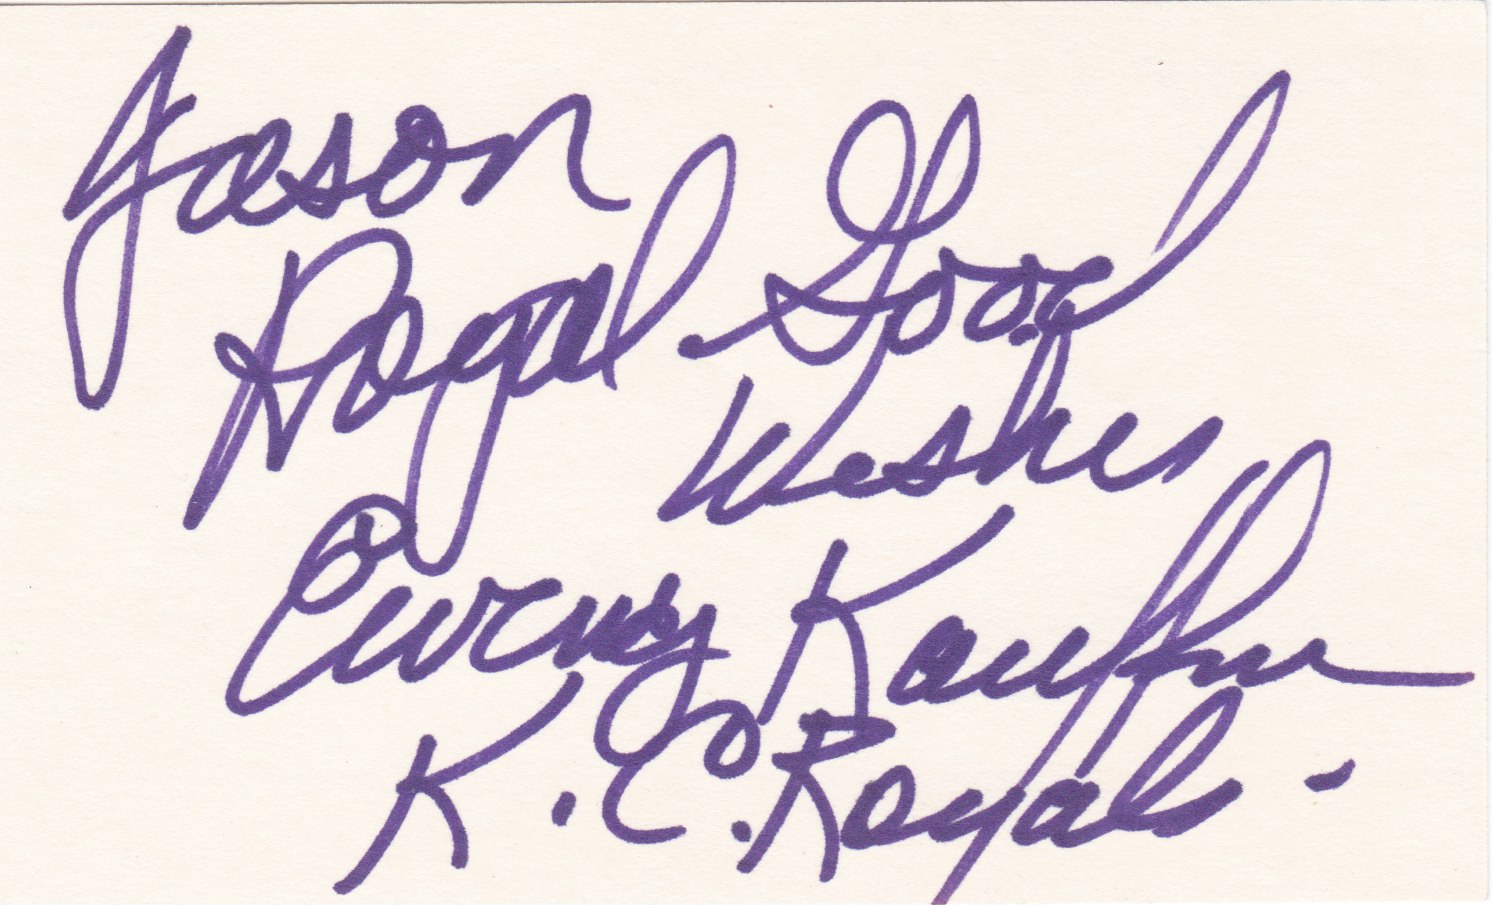 Jason
Royal Good
Wishes
Ewing Kauffman
K.C. Royals -